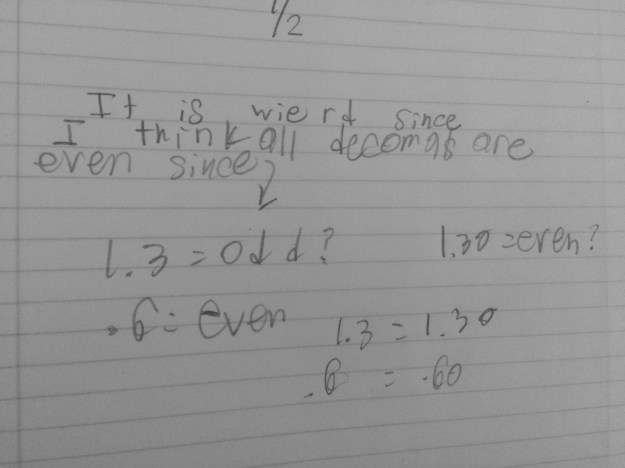 1/2
It is wierd since
I think all decomals are
even since
1.3 = Odd? 1.30 = even?
.6 = even
1.3 = 1.30
.6 = .60